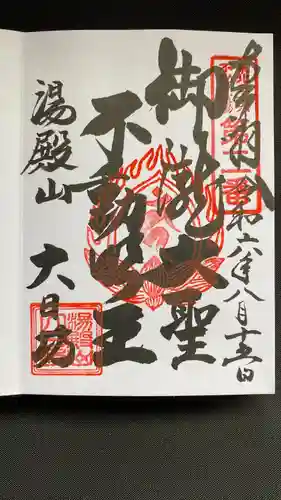 奉拝
令和六年八月十五日
第二番
御瀧大聖
不動明王
湯殿山
大日坊